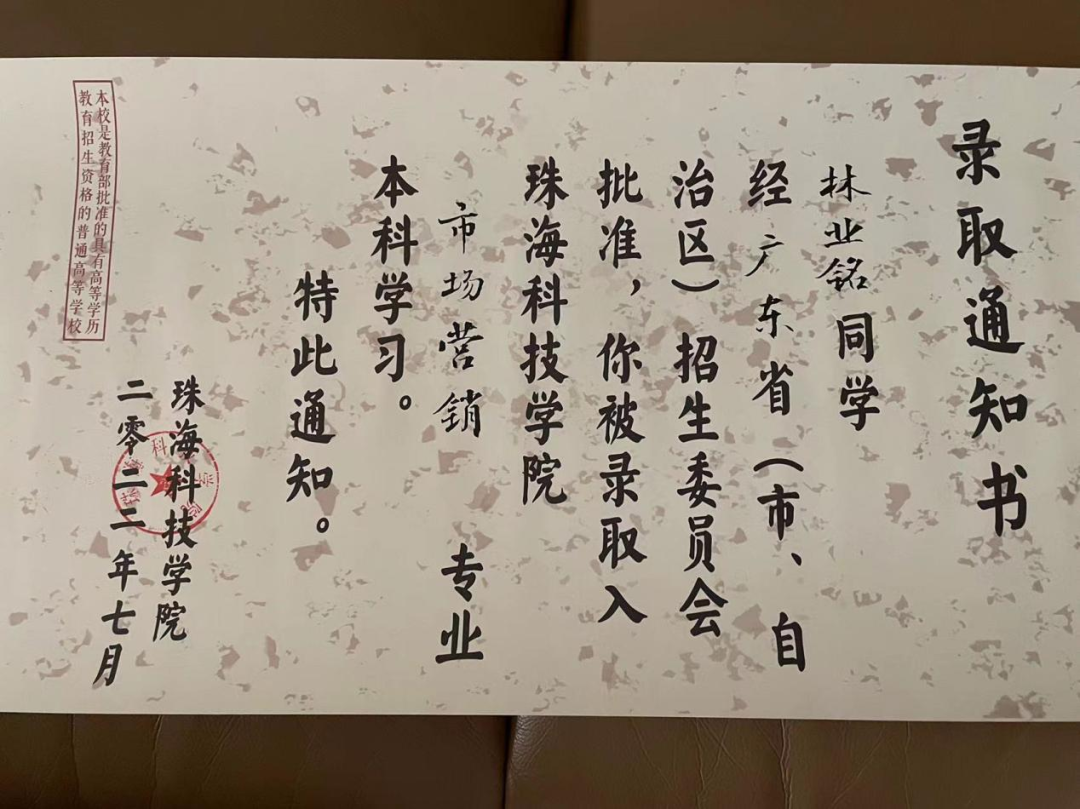 录取通知书
林业铭同学
经广东省（市、自
治区）招生委员会
批准，你被录取入
珠海科技学院
市场营销 专业
本科学习。
特此通知。
珠海科技学院
二零二二年七月
本校是教育部批准的具有高等学历
教育招生资格的普通高等学校